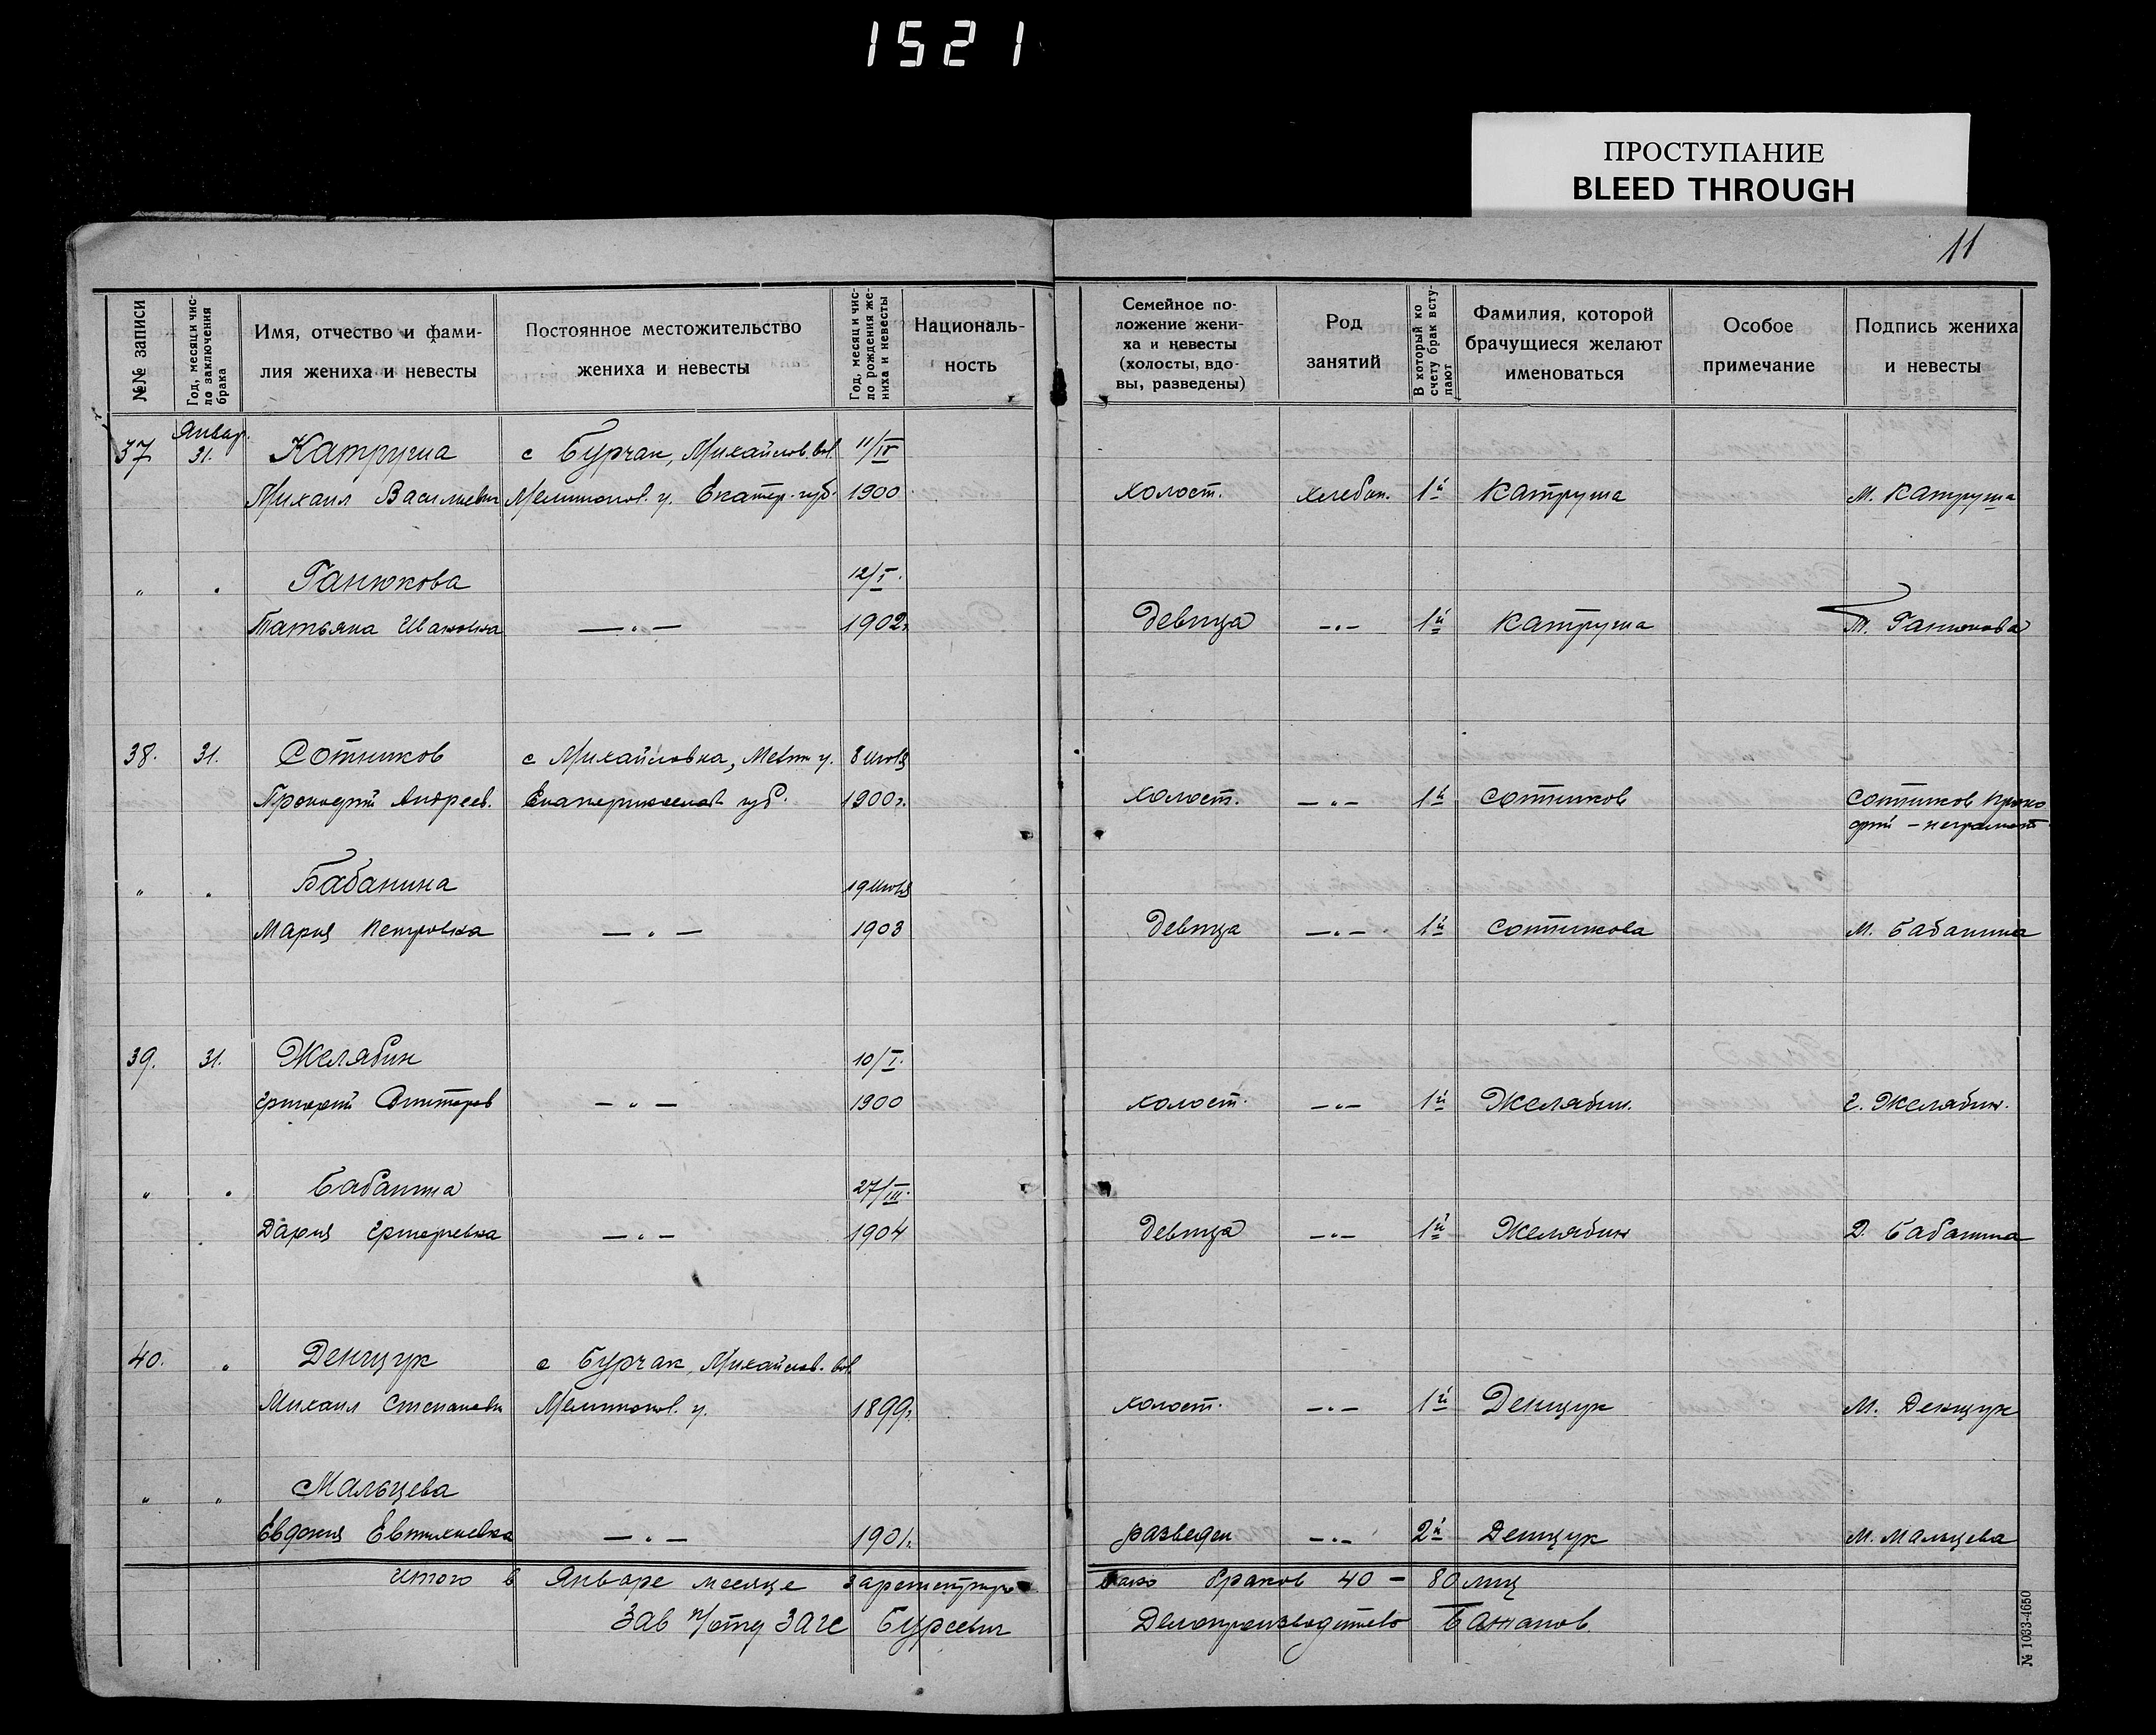 1521
ПРОСТУПАНИЕ
BLEED THROUGH
11
№№ записи
Год, месяц и чис-
ло заключения
брака
Имя, отчество и фами-
лия жениха и невесты
Постоянное местожительство
жениха и невесты
Год, месяц и чис-
ло рождения же-
ниха и невесты
Националь-
ность
Семейное по-
ложение жени-
ха и невесты
(холосты, вдо-
вы, разведены)
Род
занятий
В который ко
счету брак всту-
пают
Фамилия, которой
брачущиеся желают
именоваться
Особое
примечание
Подпись жениха
и невесты
Январ.
37 31. Катруша с Бурчак, Михайлов. вол. 11/IV
Михаил Васильевич Мелитопол. у. Екатер. губ. 1900 холост. хлебоп. 1й Катруша М. Катруша
" . Ганюкова 12/I.
Татьяна Ивановна — " — 1902. Девица — " — 1й Катруша Т. Ганюкова
38. 31. Сотников с Михайловка, Мелит у. 8 июля
Прокофий Андреев. Екатеринослав губ. 1900г. холост. — " — 1й Сотников Сотников Проко
фий – неграмот.
" . Бабанина 19 июля
Мария Петровна — " — 1903 Девица — " — 1й Сотникова М. Бабанина
39. 31. Желябин 10/I.
— " — 1900 холост. — " — 1й Желябин. Г. Желябин.
" . Бабанина 27/III.
Дария — " — 1904 Девица — " — 1й Желябин Д. Бабанина
40. " Денщук с Бурчак, Михайлов. вол.
Михаил Степанович Мелитопол. у. 1899г. холост. — " — 1й Денщук М. Денщук
" " Мальцева
Евдокия Евтихиевна — " — 1901. разведен — " — 2й Денщук М. Мальцева
Итого в Январе месяце зарегистриро вано браков 40 – 80 лиц
Зав п/отд ЗАГС Делопроизводитель Бажанов
№ 1033-4650